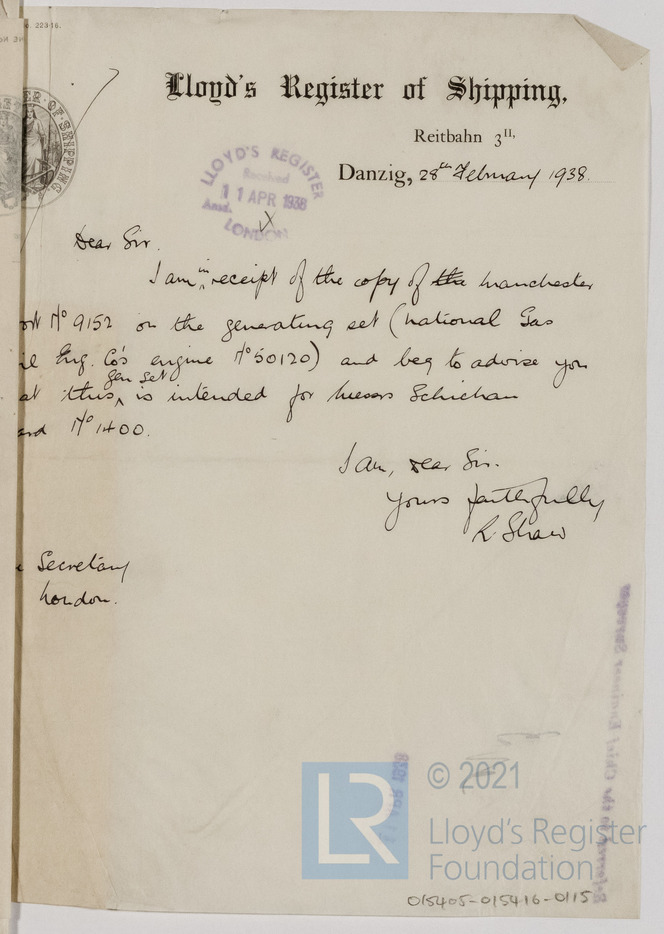 o. 223-16.
Lloyd's Register of Shipping,
Reitbahn 3II,
Danzig, 28th February 1938.
LLOYD'S REGISTER
Received
11 APR 1938
Ansd.
LONDON
Dear Sir.
I am in receipt of the copy of the Manchester
ort No 9152 on the generating set (National Gas
il Eng. Co's engine No 50120) and beg to advise you
at this gen set is intended for Messrs Schichau
ard No 1400.
I am, Dear Sir.
Yours faithfully
R. Shaw
e Secretary
London.
11 APR 1938
Referred to the Chief Engineer Surveyor
© 2021
LR
Lloyd's Register
Foundation
015405-015416-0115